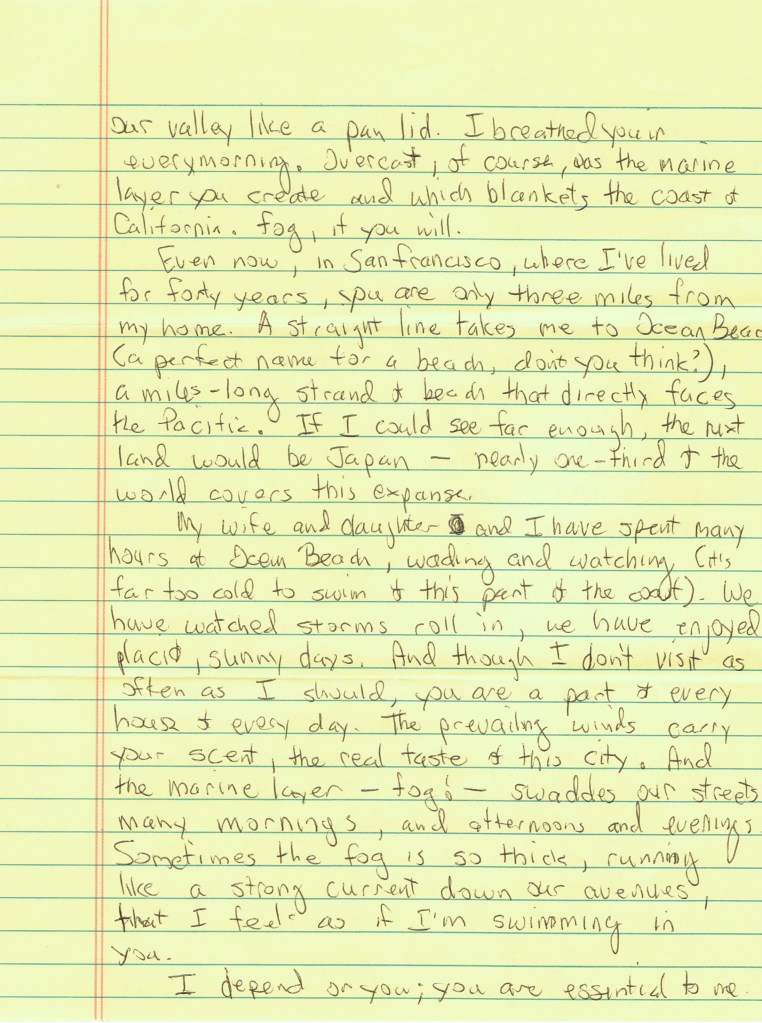 our valley like a pan lid. I breathed your in
every morning. Overcast, of course, was the marine
layer you create and which blankets the coast of
California. Fog, if you will.
Even now, in San Francisco, where I've lived
for forty years, you are only three miles from
my home. A straight line takes me to Ocean Beac
(a perfect name for a beach, don't you think?),
a miles-long strand of beach that directly faces
the Pacific. If I could see far enough, the next
land would be Japan — nearly one-third of the
world covers this expanse.
My wife and daughter and I have spent many
hours at Ocean Beach, wading and watching (it's
far too cold to swim of this part of the coast). We
have watched storms roll in, we have enjoyed
placid, sunny days. And though I don't visit as
often as I should, you are a part of every
house of every day. The prevailing winds carry
your scent, the real taste of this city. And
the marine layer — fog! — swaddes our streets
many mornings, and afternoons and evenings.
Sometimes the fog is so thick, running
like a strong current down our avenues,
that I feel as if I'm swimming in
you.
I depend on you; you are essential to me.